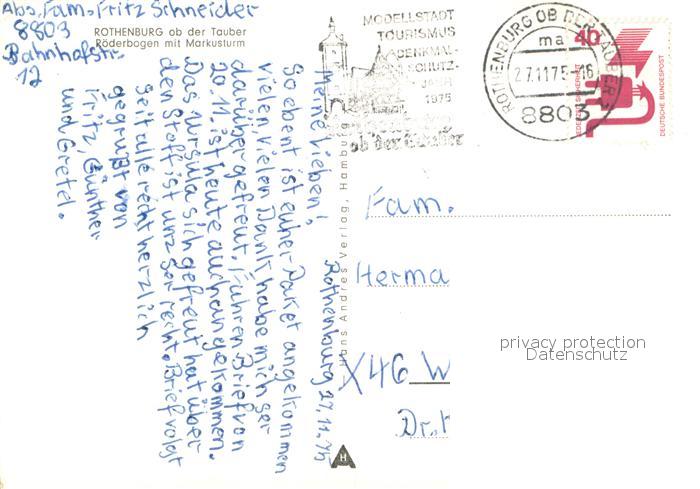 Abs. Fam. Fritz Schneider
8803
Bahnhofstr.
12
ROTHENBURG ob der Tauber
Röderbogen mit Markusturm
MODELLSTADT
TOURISMUS
DENKMAL-
SCHUTZ-
JAHR
1975
ob der Tauber
ROTHENBURG OB DER TAUBER
ma
27.11.75-16
8803
40
JEDERZEIT SICHERHEIT
DEUTSCHE BUNDESPOST
Rothenburg 27.11.75
Meine Lieben!
So ebent ist euher Paket angekommen
vielen, vielen Dank habe mich ser
darüber gefreut. Führen Brief von
20.11. ist heute auch angekommen.
Das Ursula sich gefreut hat über
den Stoff ist unz ser recht. Brief volgt
Seit alle recht herzlich
gegrüßt von
Fritz, Günther
und Gretel.
Hans Andres Verlag, Hamburg
Fam.
Herma
X46 W
Dr.
H
privacy protection
Datenschutz